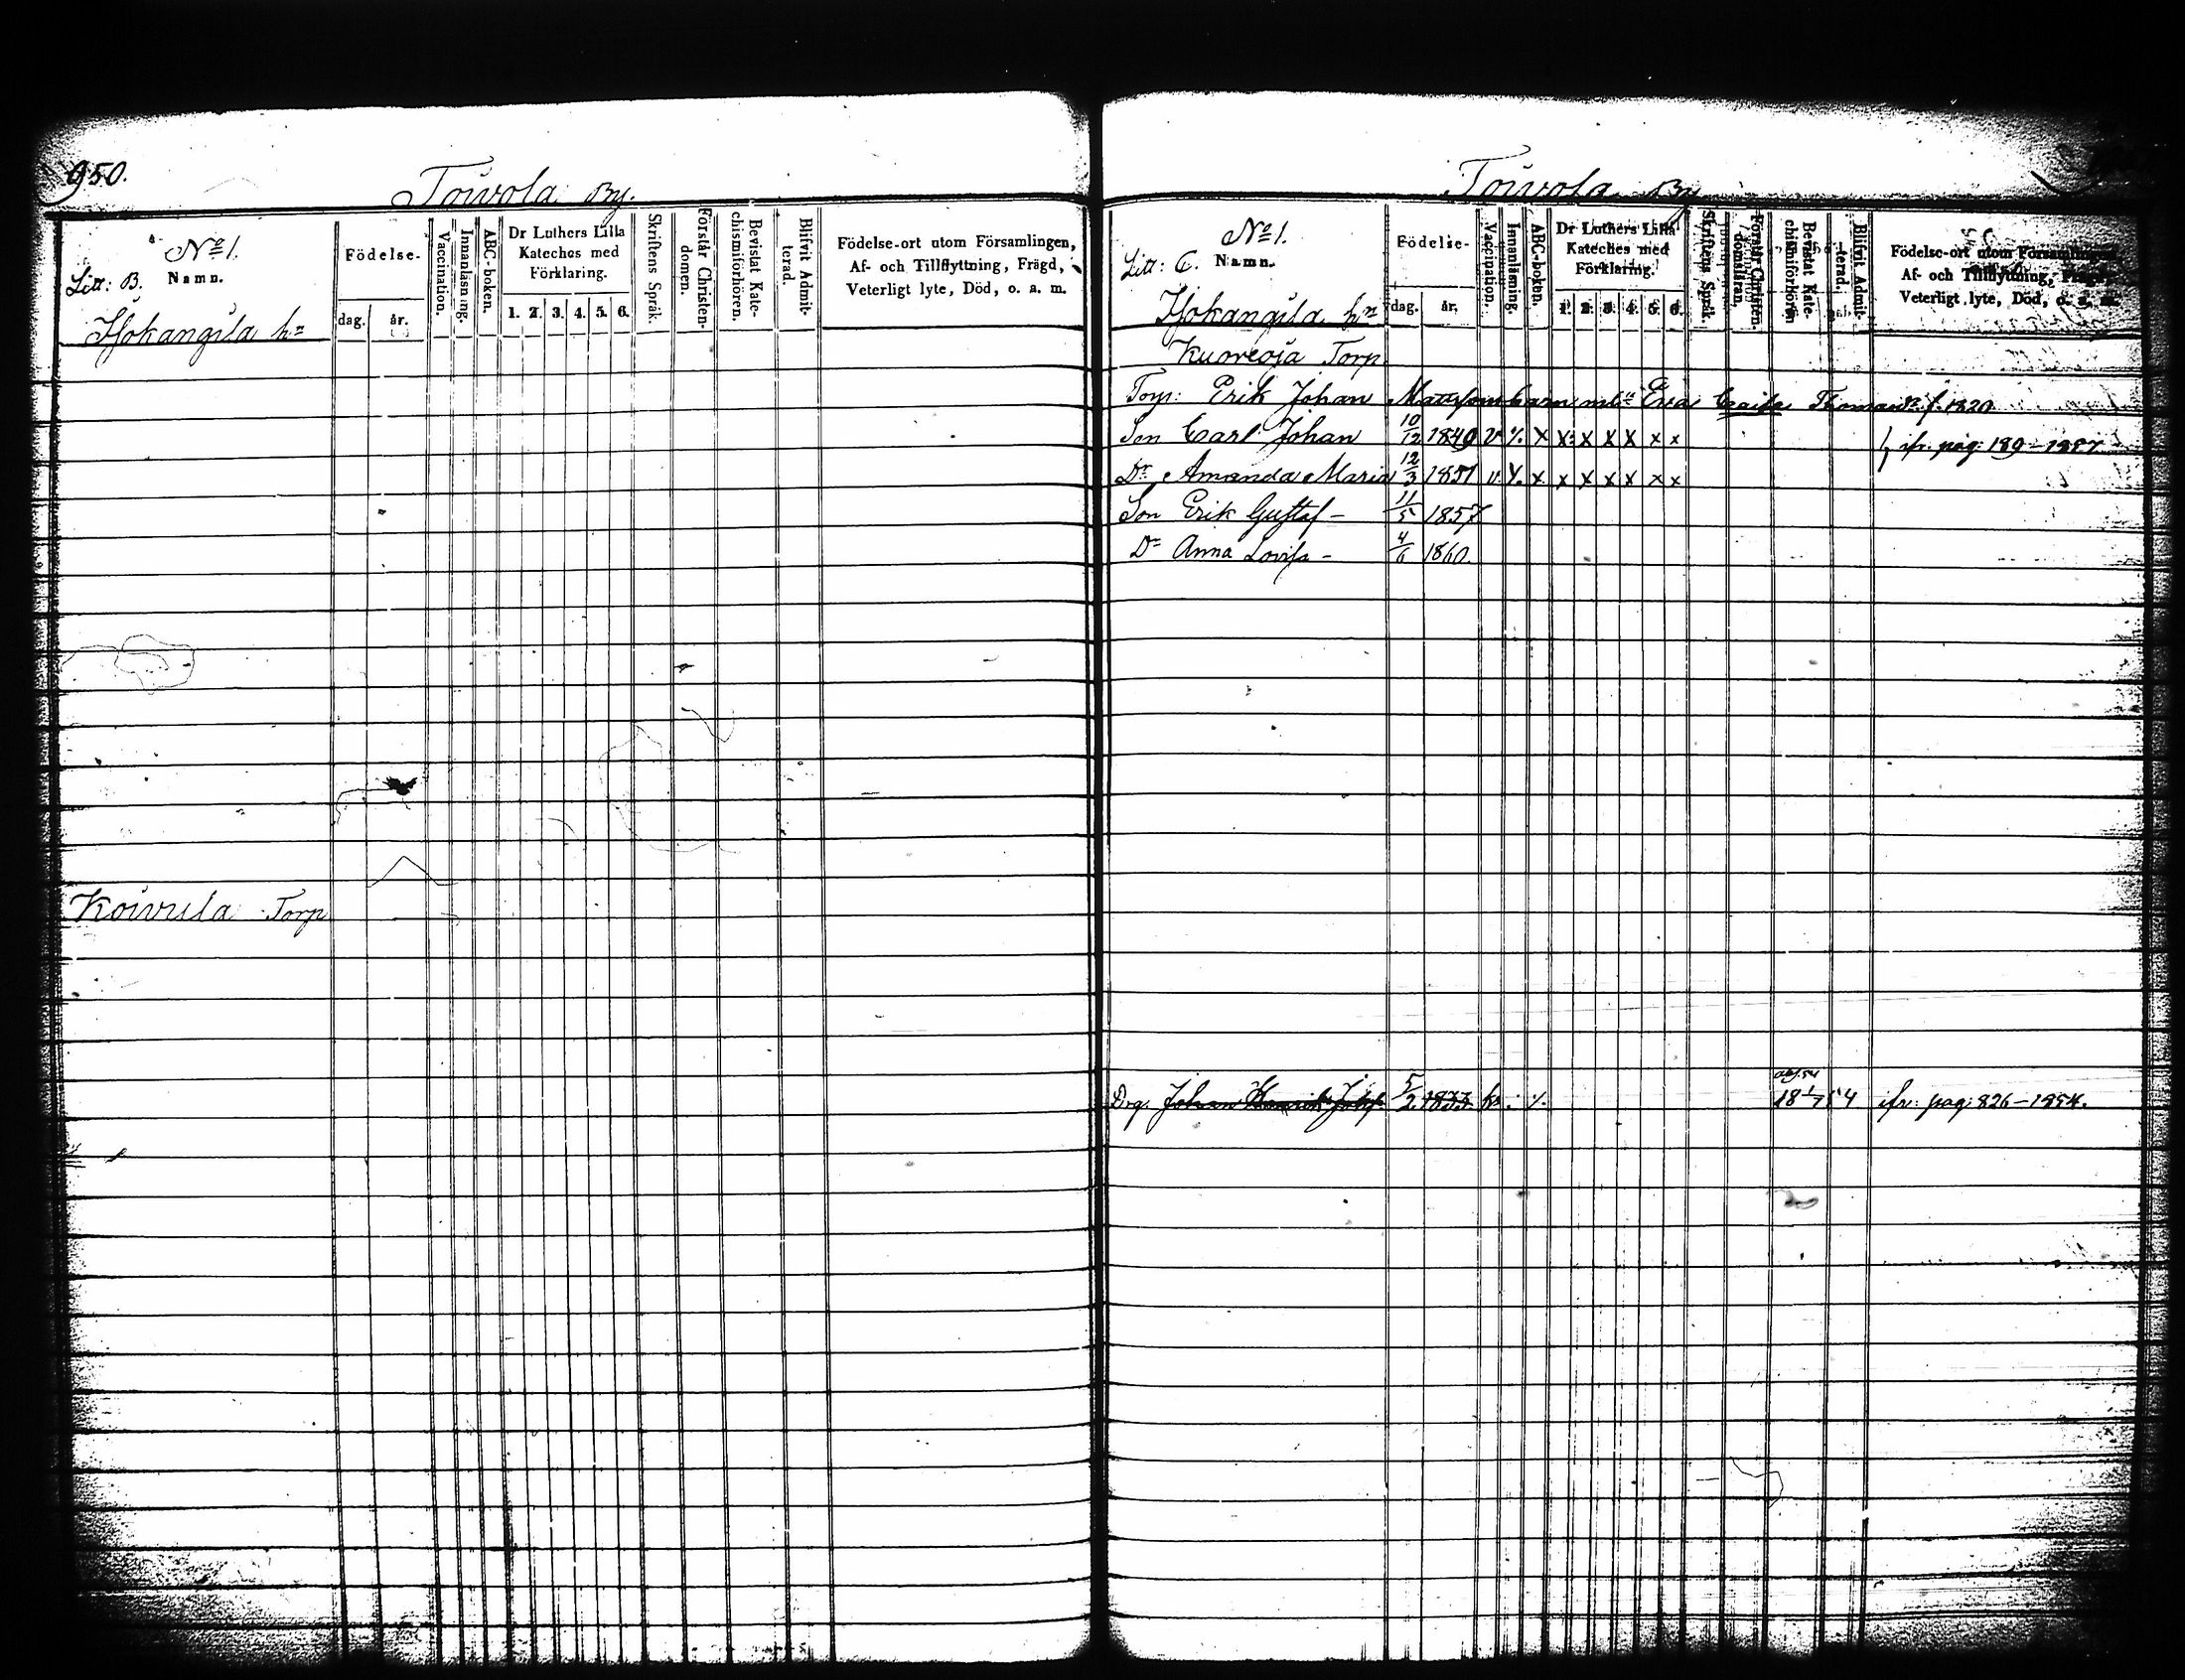 950.
Toivola By.
No 1.
Litt: B. Namn.
Födelse-
dag. år.
Vaccination.
Innanläsning.
ABC-boken.
Dr Luthers Lilla
Kateches med
Förklaring.
1. 2. 3. 4. 5. 6.
Skriftens Språk.
Förstår Christen-
domen.
Bevistat Kate-
chismiförhören.
Blifvit Admit-
terad.
Födelse-ort utom Församlingen,
Af- och Tillflyttning, Frägd,
Veterligt lyte, Död, o. a. m.
Isokangila hn
Koivula Torp
Toivola By
No 1.
Litt: C. Namn.
Födelse-
dag. år.
Vaccination.
Innanläsning.
ABC-boken.
Dr Luthers Lilla
Kateches med
Förklaring.
1. 2. 3. 4. 5. 6.
Skriftens Språk.
Förstår Christen-
domsläran.
Bevistat Kate-
chismiförhören
Blifvit Admit-
terad.
Födelse-ort utom Församlingen,
Af- och Tillflyttning, Frägd,
Veterligt lyte, Död, o. a. m.
Isokangila hn
Kuoreoja Torp.
Torp: Erik Johan Mattssons barn Eva Caisa Thomasdr f. 1820
Son Carl Johan 10/12 1849 v ·/. x x x x x x x ifr. pag: 189-1857
Dr Amanda Maria 12/3 1851 v ·/. x x x x x x x
Son Erik Gustaf - 11/5 1857
Dr Anna Lovisa - 4/6 1860.
Drg. Johan Henrik 5/2 1833 ·/. 18 1/7 54 ifr: pag: 826-1854.